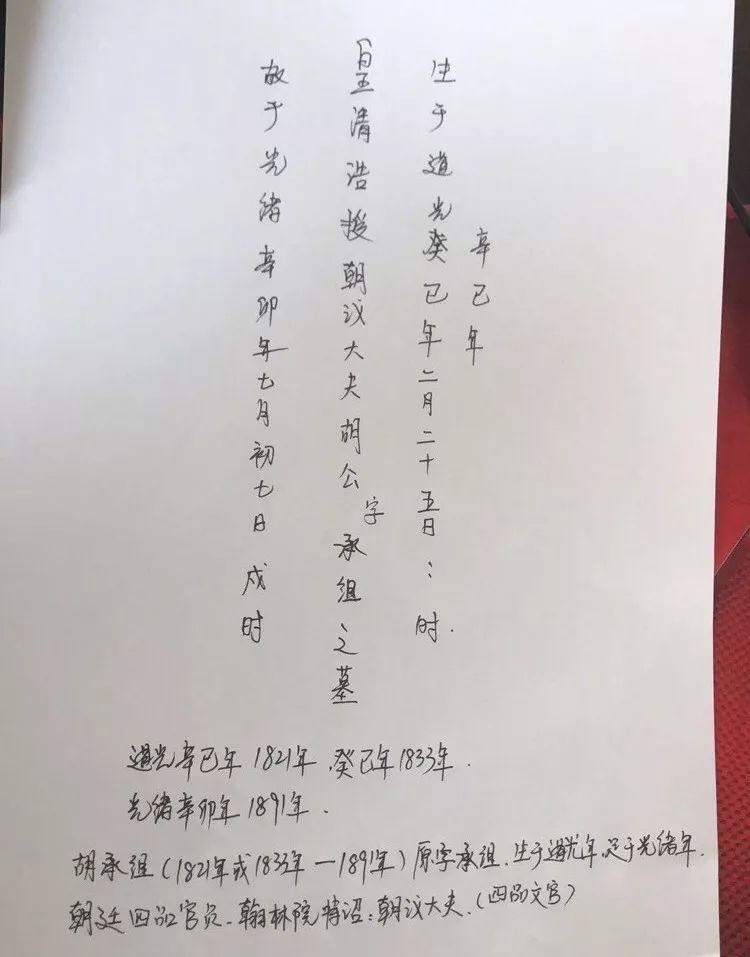 辛巳年
生于道光癸巳年二月二十五日:时.
皇清浩授朝议大夫胡公字承组之墓
故于光绪辛卯年七月初七日戍时
道光辛巳年1821年.癸巳年1833年.
光绪辛卯年1891年.
胡承组(1821年或1833年—1891年)原字承组.生于道光年.卒于光绪年.
朝廷四品官员.翰林院特诏:朝议大夫.(四品文官)